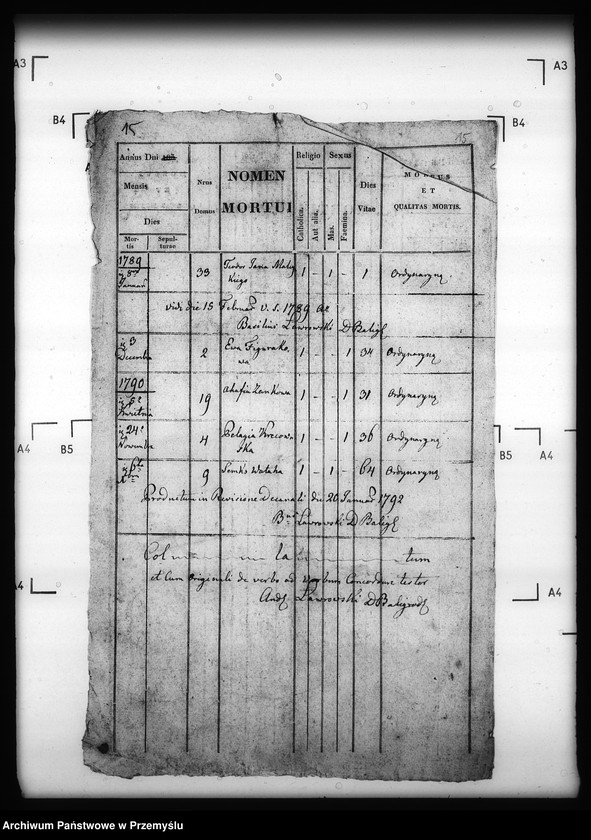 A3
A3
B4
B4
15
15
Annus Dni 183
Mensis
Dies
Mortis
Sepulturae
Nrus Domus
NOMEN
MORTUI
Religio
Catholica.
Aut alia.
Sexus
Mas.
Faemina.
Dies Vitae
MORBUS
ET
QUALITAS MORTIS.
1789
Januar 33 Teodor Jana 1 - 1 - 1 Ordynaryny
vidi die 15 Februar V. S. 1789
Basilius Ławrowski D Balig
3 Decembra 2 Ewa Figurakowa 1 - - 1 34 Ordynaryny
1790
Kwietnia 19 Ahafia Zemkowa 1 - - 1 31 Ordynaryny
24 Nowembra 4 Pelagia 1 - - 1 36 Ordynaryny
9 Semko Wataha 1 - 1 - 64 Ordynaryny
Productum in Revisione Decanali die 20 Januar 1792
Ławrowski D Balig
et Cum Originali de verbo ad verbum Concordare testor
Ławrowski D Baligrod
A4
B5
B5
A4
A4
A4
Archiwum Państwowe w Przemyślu